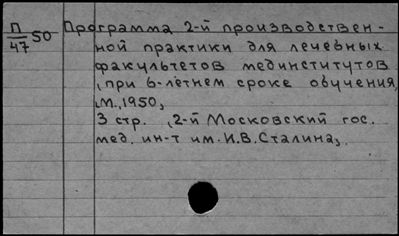 П/47 50 Программа 2-й производствен-
ной практики для лечебных
факультетов мединститутов
, при 6-летнем сроке обучения,
, М., 1950,
3 стр. , 2-й Московский гос.
мед. ин-т им. И.В. Сталина,.